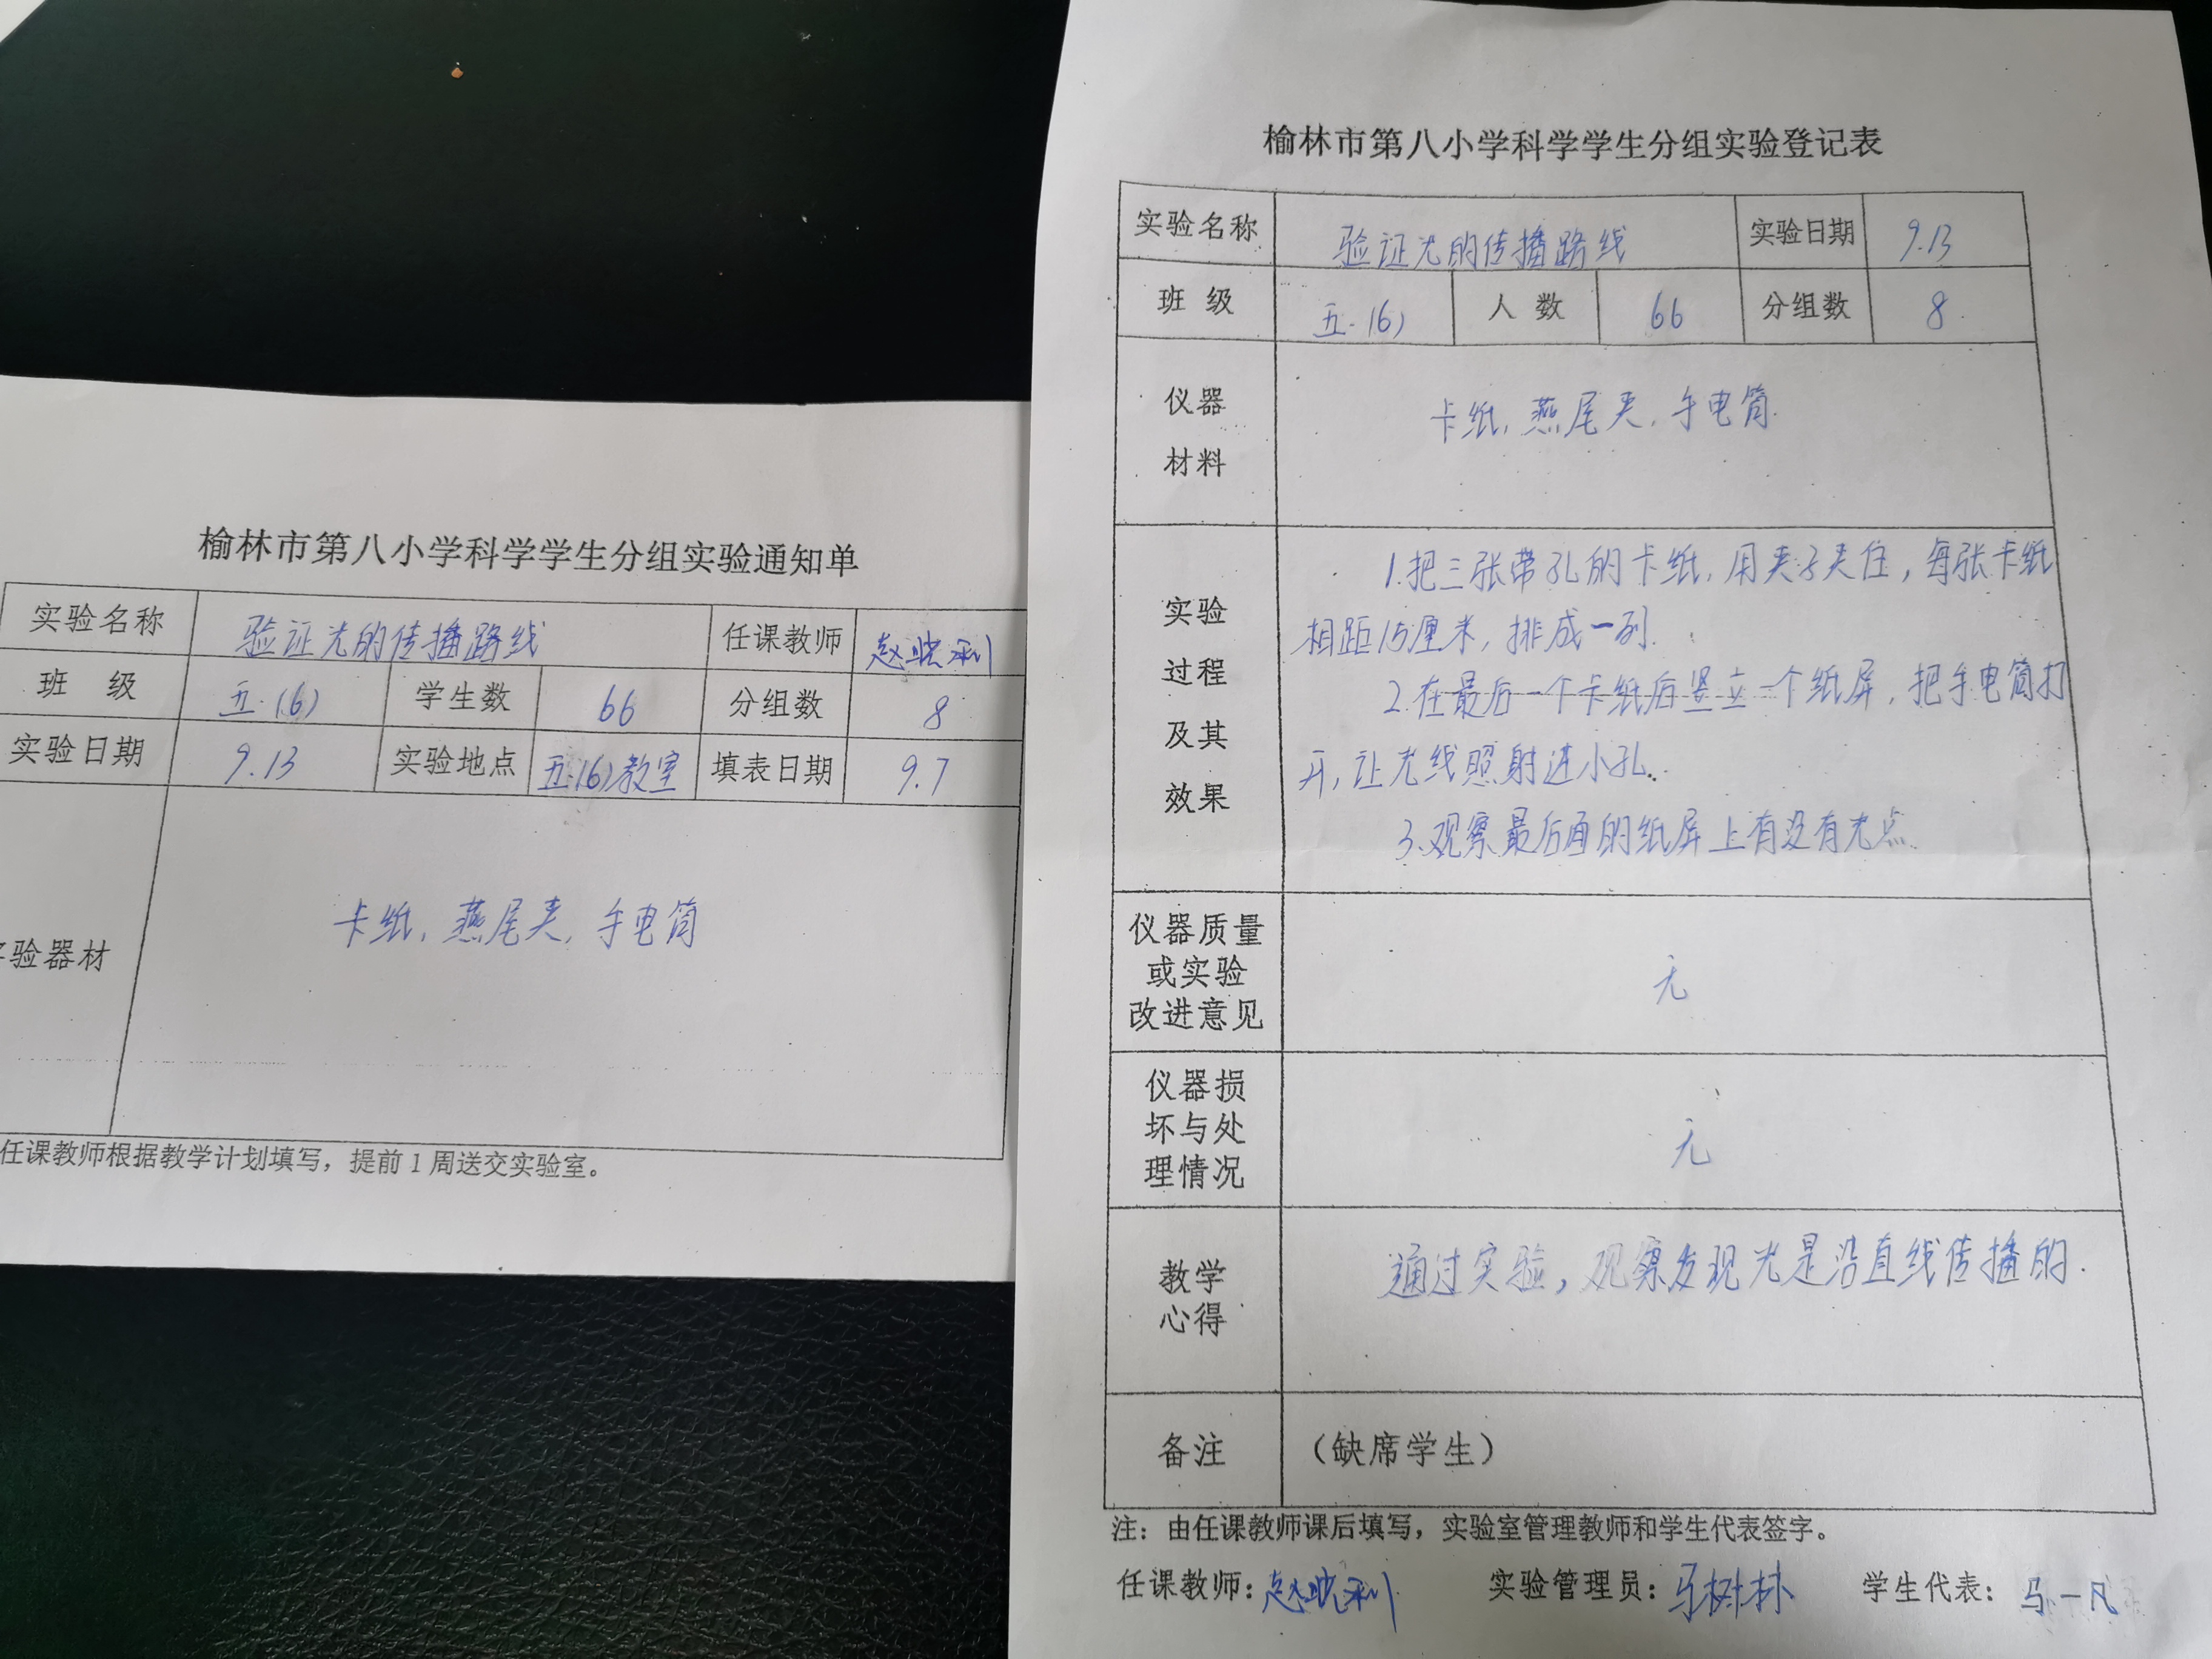 榆林市第八小学科学学生分组实验通知单
实验名称 验证光的传播路线 任课教师 赵晓利
班 级 五.(6) 学生数 66 分组数 8
实验日期 9.13 实验地点 五.(6)教室 填表日期 9.7
验器材 卡纸,燕尾夹,手电筒
任课教师根据教学计划填写，提前1周送交实验室。
榆林市第八小学科学学生分组实验登记表
实验名称 验证光的传播路线 实验日期 9.13
班 级 五.(6) 人 数 66 分组数 8
仪器
材料
卡纸,燕尾夹,手电筒.
实验
过程
及其
效果
1.把三张带孔的卡纸,用夹子夹住,每张卡纸
相距15厘米,排成一列.
2.在最后一个卡纸后竖立一个纸屏,把手电筒打
开,让光线照射进小孔.
3.观察最后面的纸屏上有没有光点.
仪器质量
或实验
改进意见
无
仪器损
坏与处
理情况
无
教学
心得
通过实验,观察发现光是沿直线传播的.
备注 （缺席学生）
注：由任课教师课后填写，实验室管理教师和学生代表签字。
任课教师：赵晓利 实验管理员：马树林 学生代表：马一凡